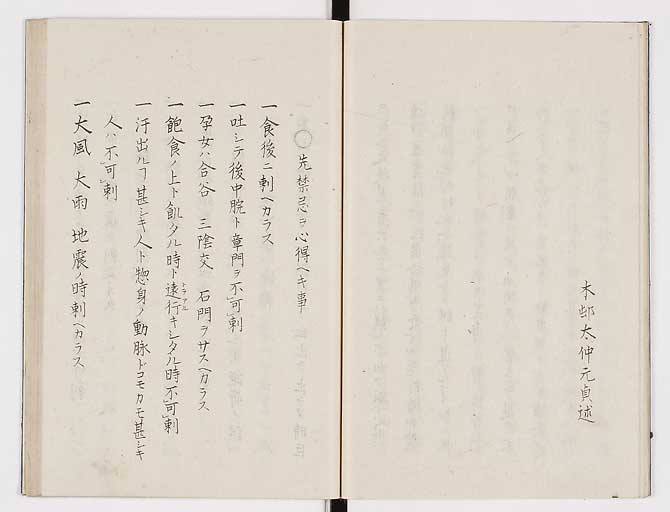 木邨太仲元貞述
○先禁忌ヲ心得ヘキ事
一食後ニ刺ヘカラス
一吐シテ後中脘ト章門ヲ不可刺
一孕女ハ合谷 三陰交 石門ヲサスヘカラス
一飽食ノ上ト飢タル時ト遠行キシタル時不可刺
一汗出ルヿ甚シキ人ト惣身ノ動脉ドコモカモ甚シキ
人ハ不可刺
一大風 大雨 地震ノ時刺ヘカラス